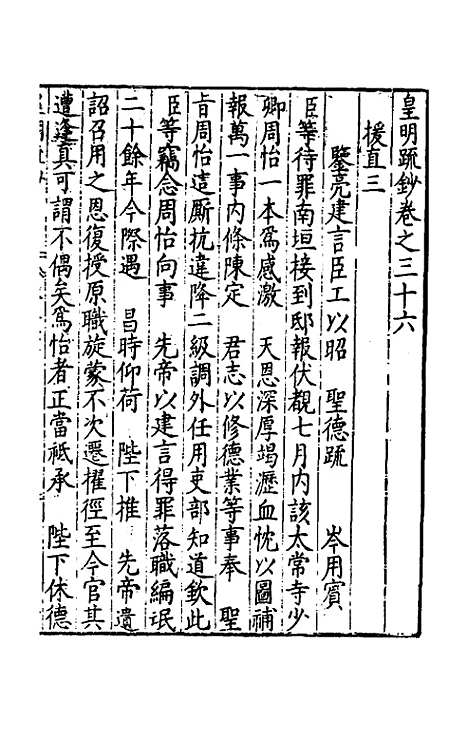 皇明疏鈔卷之三十六
援直三
鑒亮建言臣工以昭　聖德疏　　岑用賓
臣等待罪南垣接到邸報伏覩七月內該太常寺少
卿周怡一本爲感激　天恩深厚竭瀝血忱以圖補
報萬一事內條陳定　君志以修德業等事奉　聖
旨周怡這厮抗違降二級調外任用吏部知道欽此
臣等竊念周怡向事　先帝以建言得罪落職編氓
二十餘年今際遇　昌時仰荷　陛下推　先帝遺
詔召用之恩復授原職旋蒙不次遷擢徑至今官其
遭逢真可謂不偶矣爲怡者正當祗承　陛下休德